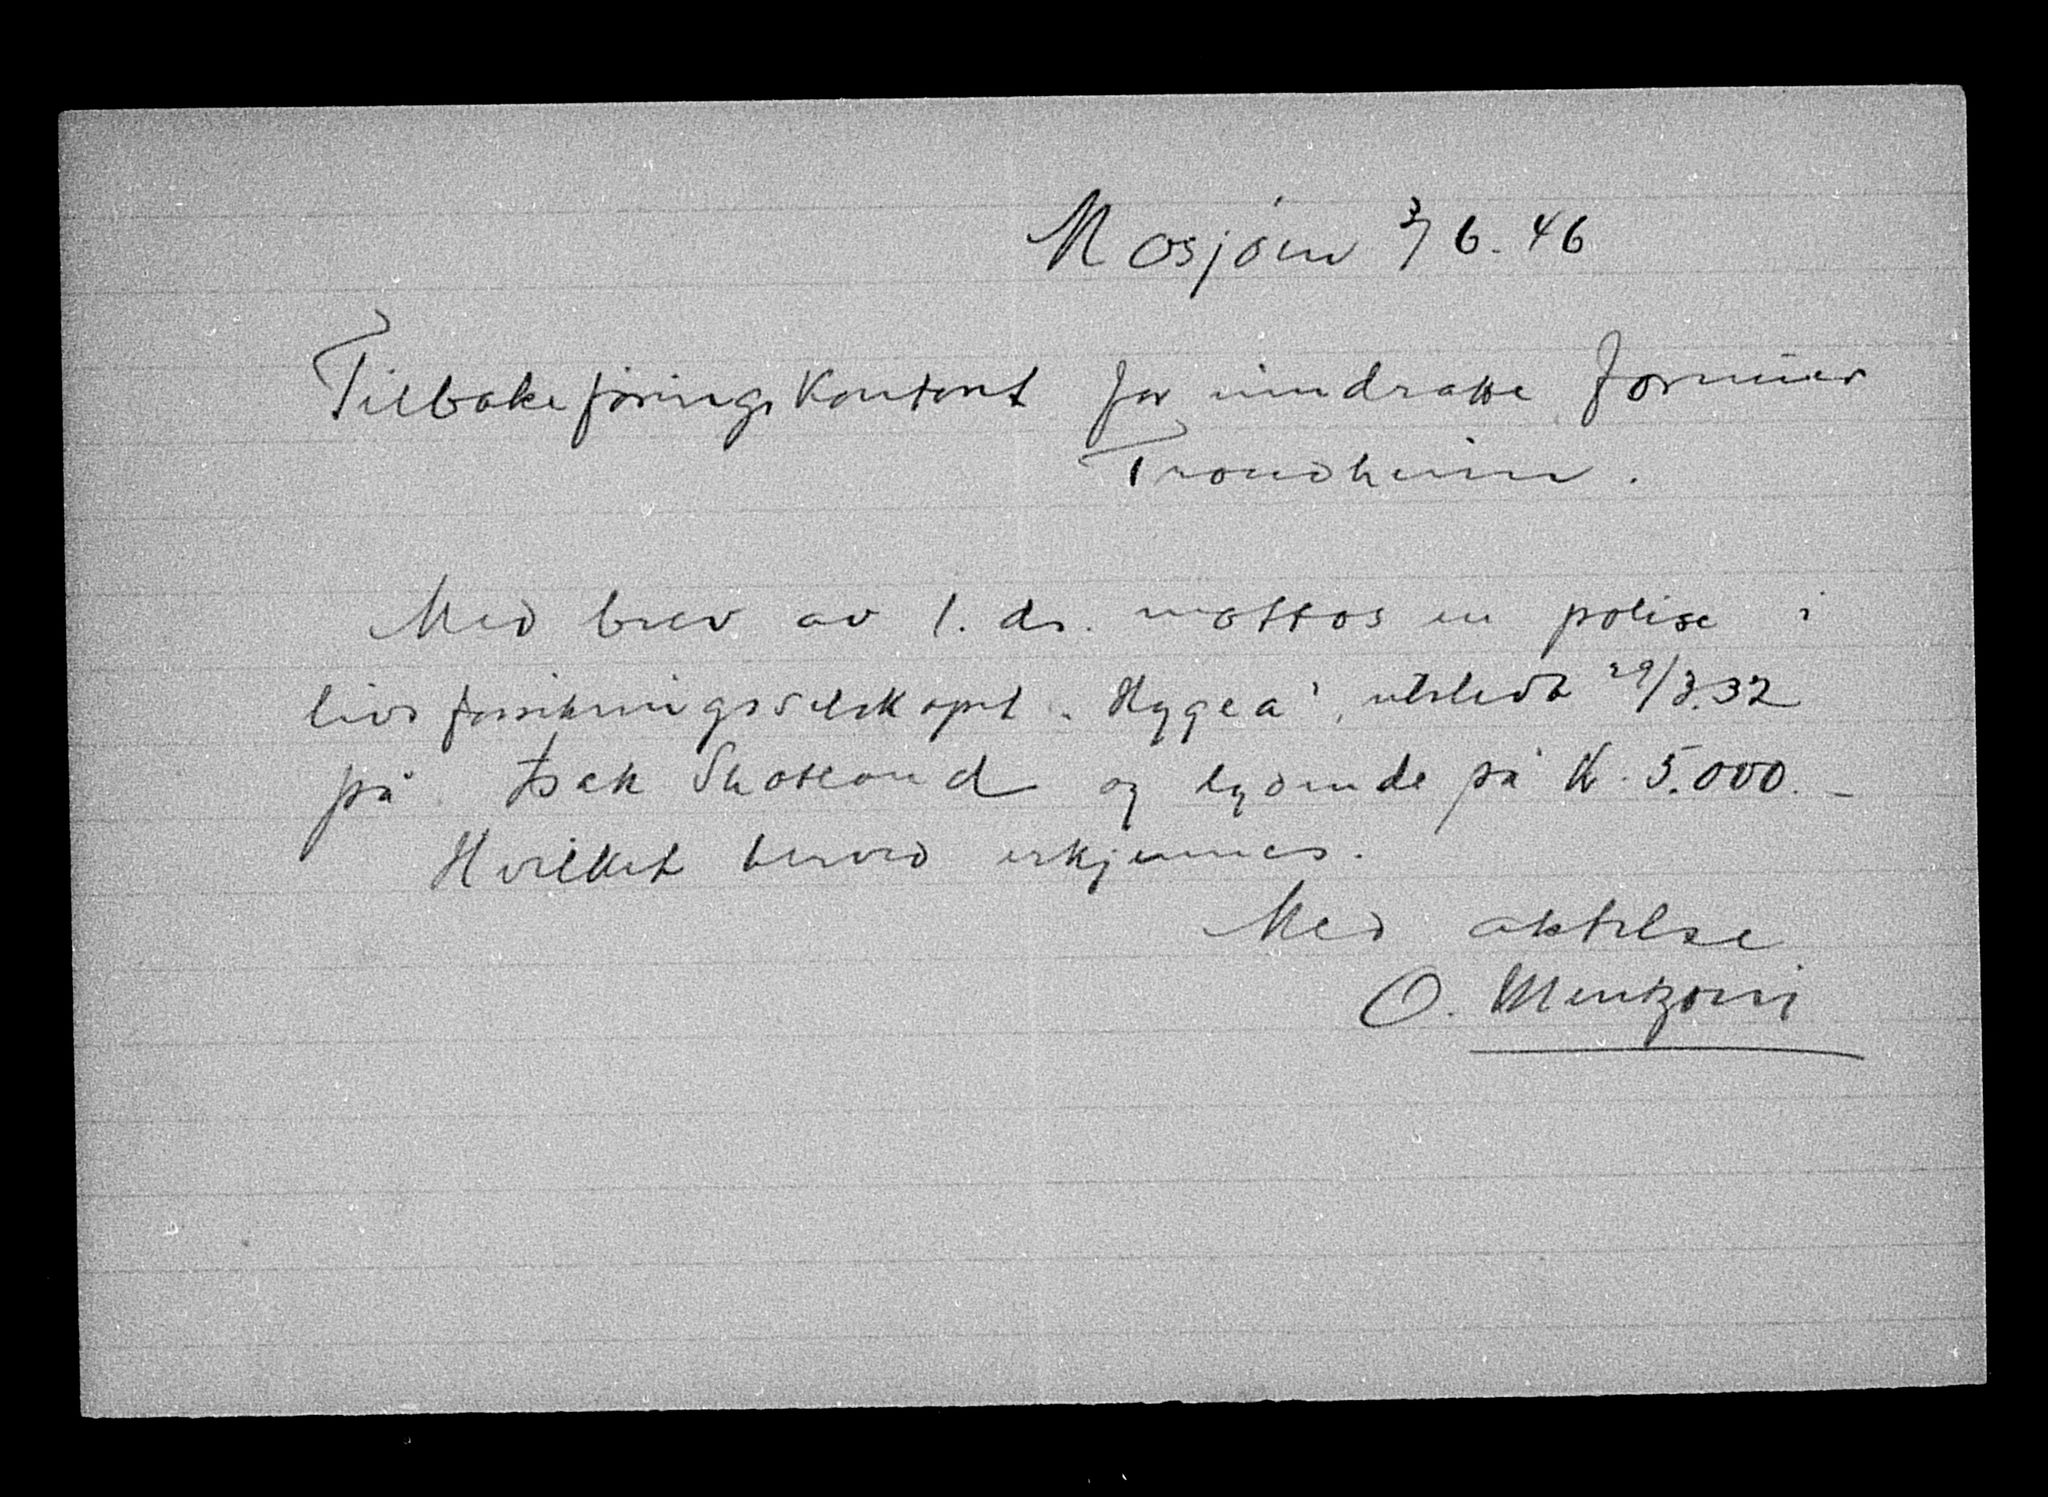 Mosjöen 3/6.46
Tilbakeföringskontoret for inndratte formuer
Trondheim.
Med brev av 1. ds. mottos en polise i
livsforsikringsselskapet "Hygea", utstedt 29/3.32
på Isak Shotland og lydende på Kr. 5.000.-
Hvilket herved erkjennes.
Med aktelse
O. Mentzoni